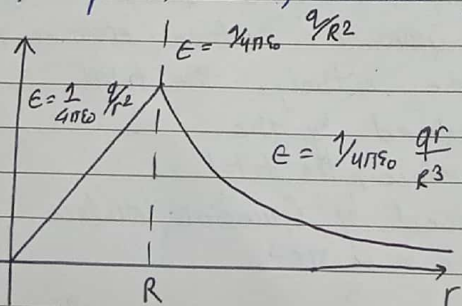 ε = 1/4πε₀ q/R²
ε = 1/4πε₀ q/r²
ε = 1/4πε₀ qr/R³
R
r